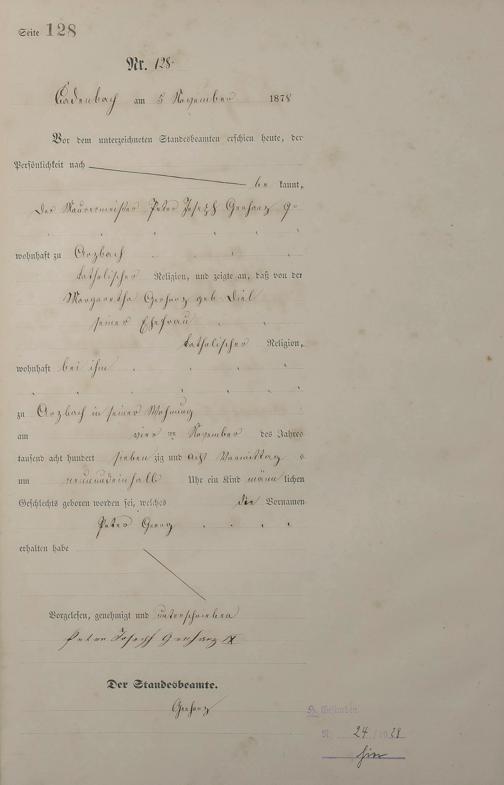 Seite 128
Nr. 128
Cadenbach am 5 November 1878
Vor dem unterzeichneten Standesbeamten erschien heute, der
Persönlichkeit nach
be kannt,
der Maurermeister Peter Joseph Gerharz
wohnhaft zu Arzbach
katholischer Religion, und zeigte an, daß von der
Margaretha Gerharz geb. Diel
seiner Ehefrau
katholischer Religion,
wohnhaft bei ihm
zu Arzbach in seiner Wohnung
am vier ten November des Jahres
tausend acht hundert sieben zig und acht Vormittag s
um neunundeinhalb Uhr ein Kind männ lichen
Geschlechts geboren worden sei, welches die Vornamen
Peter Georg
erhalten habe
Vorgelesen, genehmigt und unterschrieben
Peter Joseph Gerharz
Der Standesbeamte.
Gerharz
Nr. 24